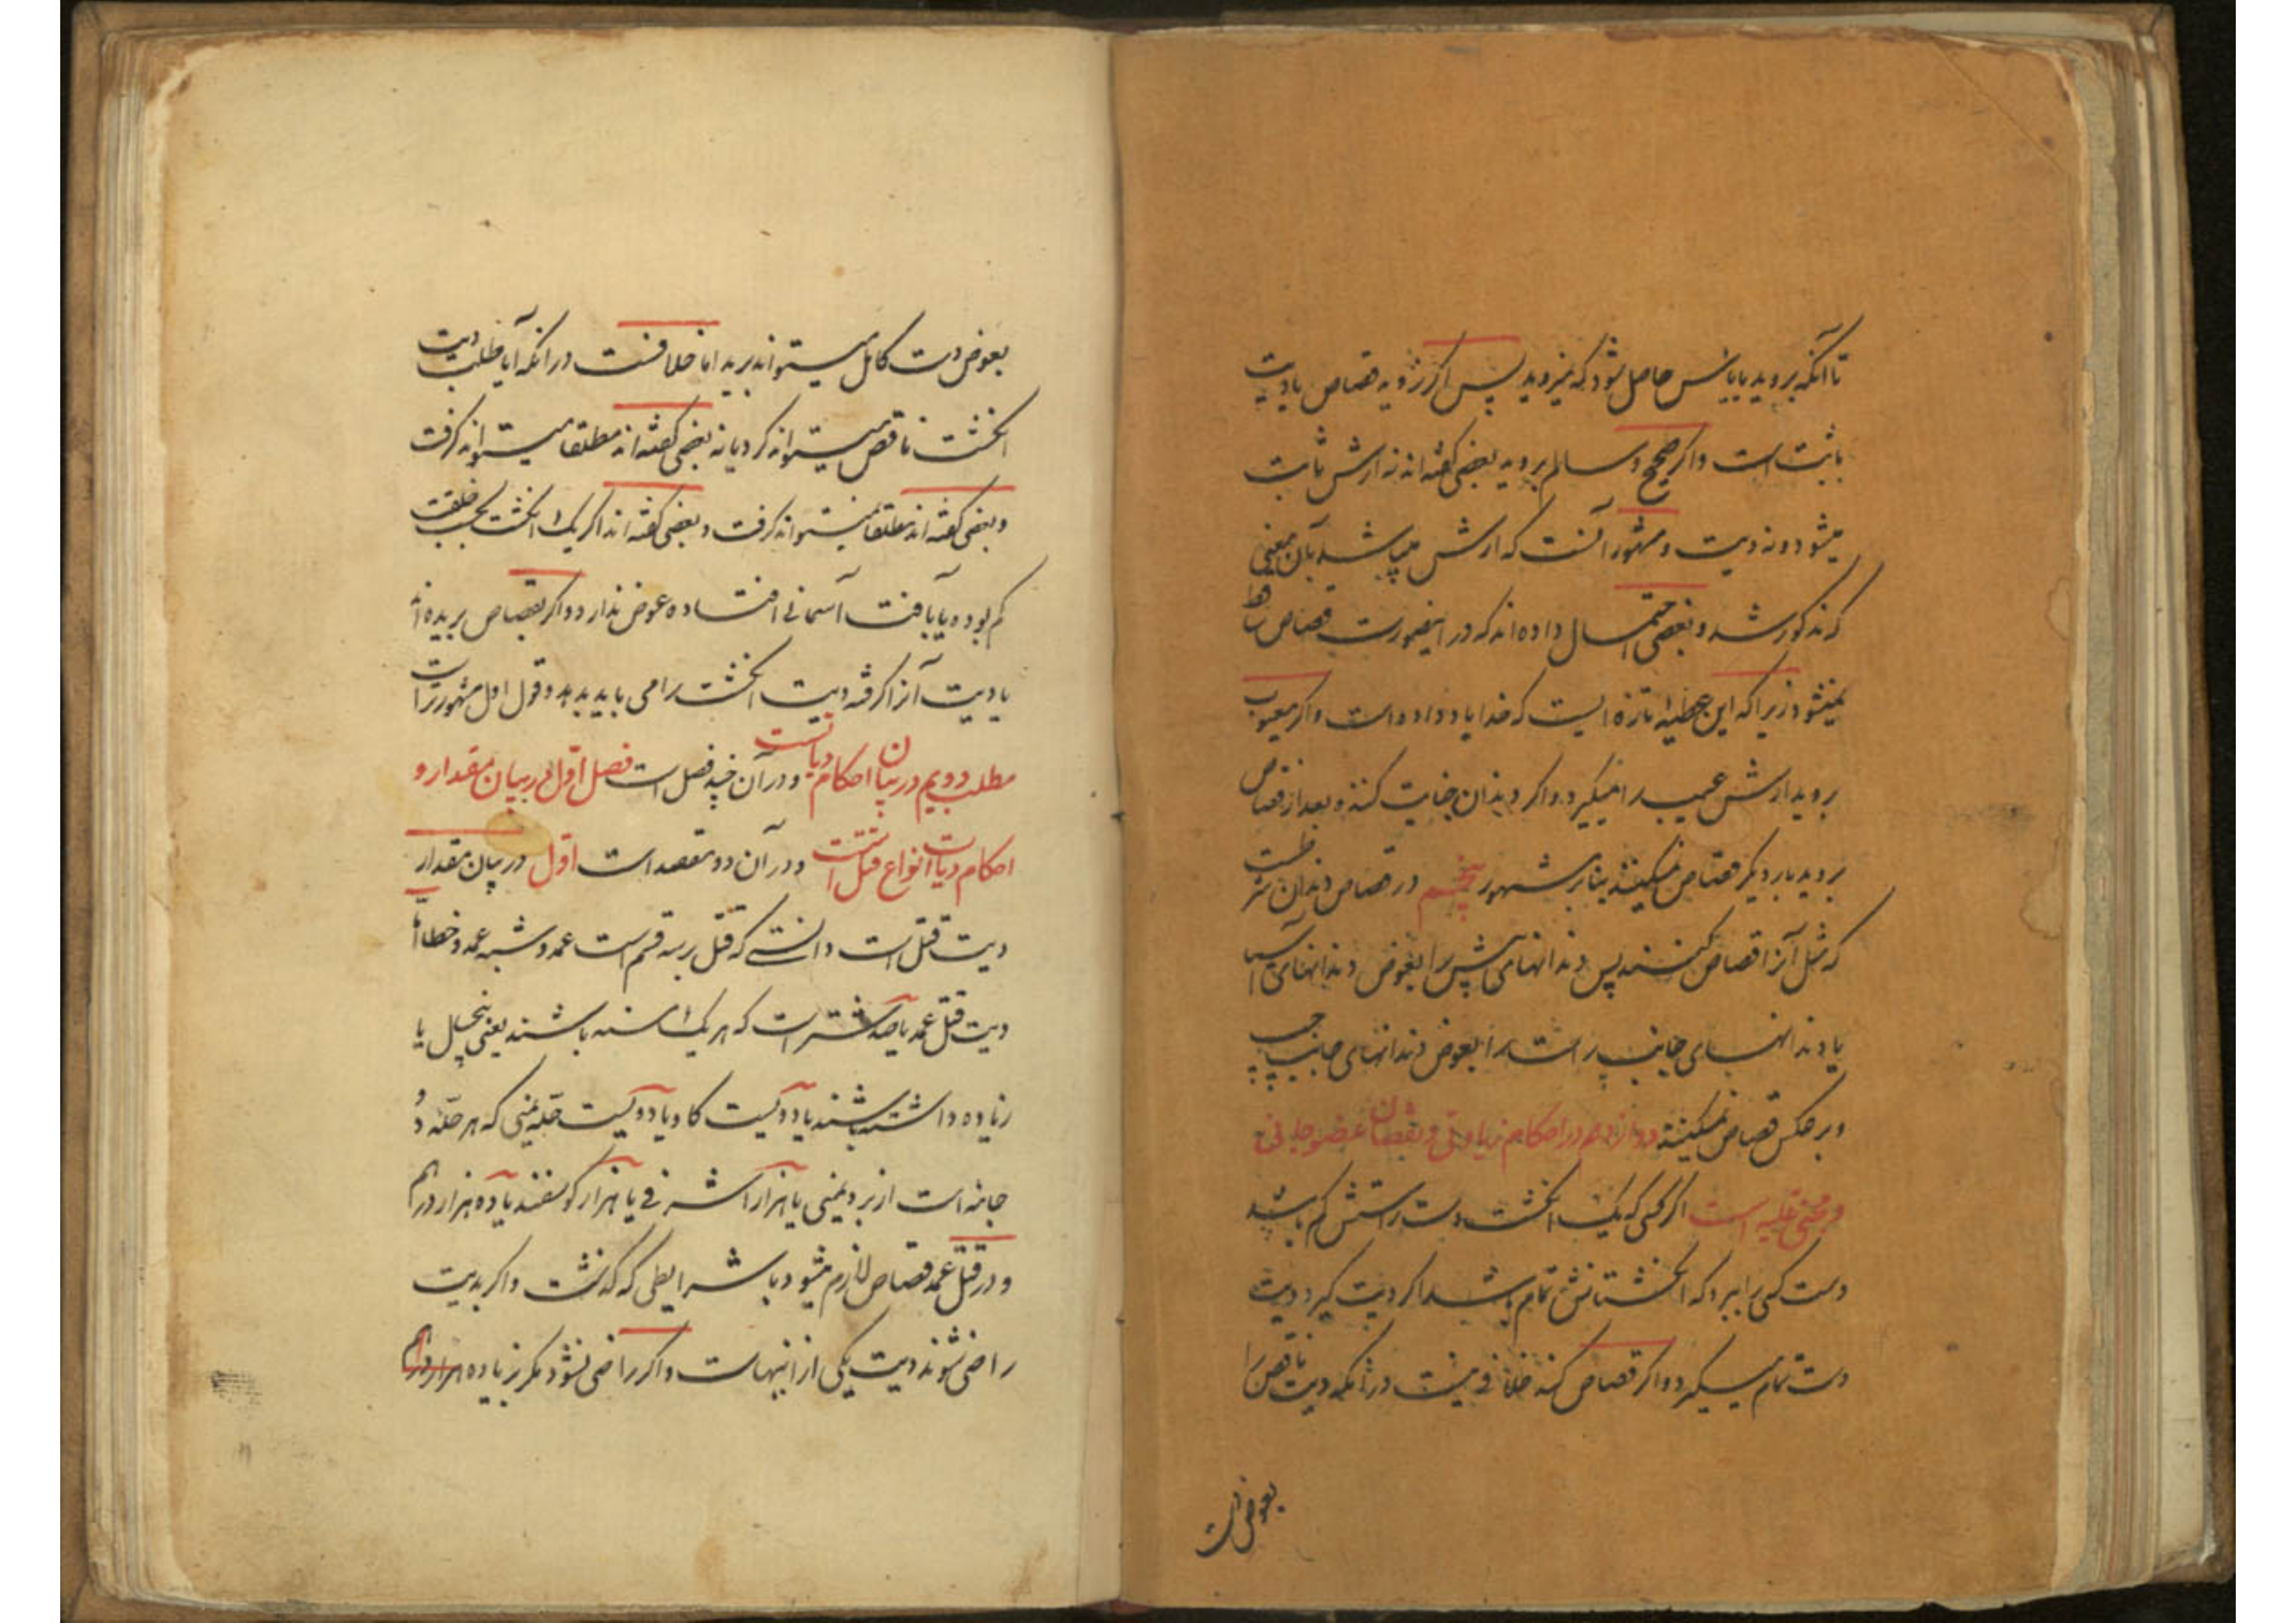 تا آنکه بروید یا یاس حاصل شود که نمیروید پس اگر نروید قصاص یا دیت
ثابت است و اگر صحیح و سالم بروید بعضی گفته‌اند نه ارش ثابت
میشود و نه دیت و مشهور آنست که ارش میباشد بآن معنی
که مذکور شد و بعضی احتمال داده‌اند که در اینصورت قصاص ساقط
نمیشود زیرا که این عطیه تازه ایست که خدا باو داده است و اگر معیوب
بروید ارش عیب را میگیرد و اگر دندان جنایت کننده بعد از قصاص
بروید بار دیگر قصاص نمیکنند بنابر مشهور پنجم در قصاص دندان شرطست
که مثل آنرا قصاص کنند پس دندانهای پیش را بعوض دندانهای آسیا
یا دندانهای جانب راست را بعوض دندانهای جانب چپ
و برعکس قصاص نمیکنند دوازدهم در احکام زیادتی و نقصان عضو جانی
و مجنی علیه است اگر کسی که یک انگشت دست راستش کم باشد
دست کسی را ببرد که انگشتانش تمام باشد اگر دیت گیرد دیت
دست تمام میگیرد و اگر قصاص کند خلافی نیست در آنکه دست ناقص را
بعوض دست
بعوض دست کامل میتواند برید اما خلافست در آنکه آیا طلب دیت
انگشت ناقص میتواند کرد یا نه بعضی گفته‌اند مطلقا میتواند گرفت
و بعضی گفته‌اند مطلقا نمیتواند گرفت و بعضی گفته‌اند اگر یک انگشت بحسب خلقت
کم بوده یا بآفت آسمانی افتاده عوض ندارد و اگر بقصاص بریده‌اند
یا دیت آنرا گرفته دیت انگشت را می باید بدهد و قول اول مشهورتر است
مطلب دویم در بیان احکام دیانست و در آن چند فصل است فصل اول در بیان مقدار و
احکام دیات انواع قتل است و در آن دو مقصد است اول در بیان مقدار
دیت قتل است دانستی که قتل بر سه قسم است عمد و شبه عمد و خطا اما
دیت قتل عمد یا صد شتر است که هر یک مسنه باشند یعنی پنجسال یا
زیاده داشته باشند یا دویست گاو یا دویست حله یمنی که هر حله دو
جامه است از برد یمنی یا هزار اشرفی یا هزار گوسفند یا ده هزار درهم
و در قتل عمد قصاص لازم میشود با شرایطی که گذشت و اگر بدیت
راضی شوند دیت یکی از اینهاست و اگر راضی نشود مگر زیاده هزار درهم